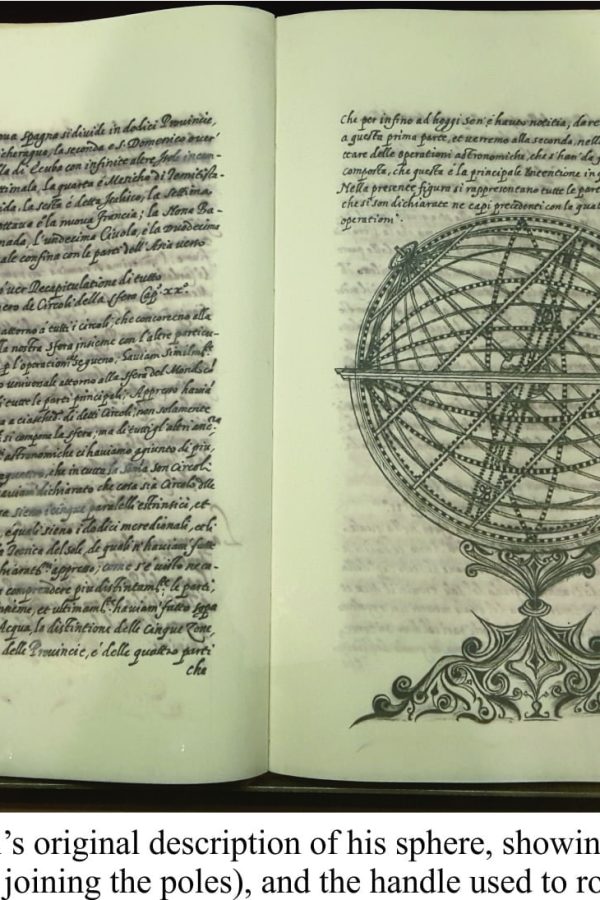 ua spagna si divide in dodici Prouincie,
la di Ecubo con infinite altre Isole in con-
timala, la quarta è Mechico di
la sesta è detta Jachico; la settima,
ottaua è la nuoua francia; la Nona Ba-
nada, l'undecima Ciuola, e la Duodecima
ale confina con le parti dell'Asia uerso
uer Recapitulatione di tutto
ero de Circoli della sfera Cap.º xx.º
attorno à tutti i circoli, che concorrono alla
la nostra sfera insieme con l'altre particu-
p l'operationi seguono,
o uniuersale attorno alla sfera del Mondo, co
di tutte le parti principali; Appresso hauià
a à ciasched.º di detti Circoli; non solamente
si compone la sfera; ma di tutti gl'altri anco
astronomiche ci hauiamo agiunto di piu,
che in tutta la son Circoli
hauiam dichiarato che cosa sia Circolo
sieno i cinque paralelli estrinsici, et
e quali sieno i dodici meredionali, et li
Teorica del sole, de quali n'hauiam fatte
appresso; come s'è uisto ne ca-
comprendere piu distintam.te le parti,
insieme, et ultimam.te hauiam fatto sopra
Acqua, la distintione delle Cinque Zone,
delle Prouincie, e' delle quattro parti
che
Che per infino ad hoggi Son' è hauuto notitia, dare
à questa prima parte, et uerremo alla seconda, nella
tare delle operationi astronomiche, che s'han' da
comporta, che questa è la principale Intentione in
Nella presente figura si rappresentano tutte le part
che si son dichiarate ne capi precedenti con la qual
operationi.
's original description of his sphere, showin
joining the poles), and the handle used to ro